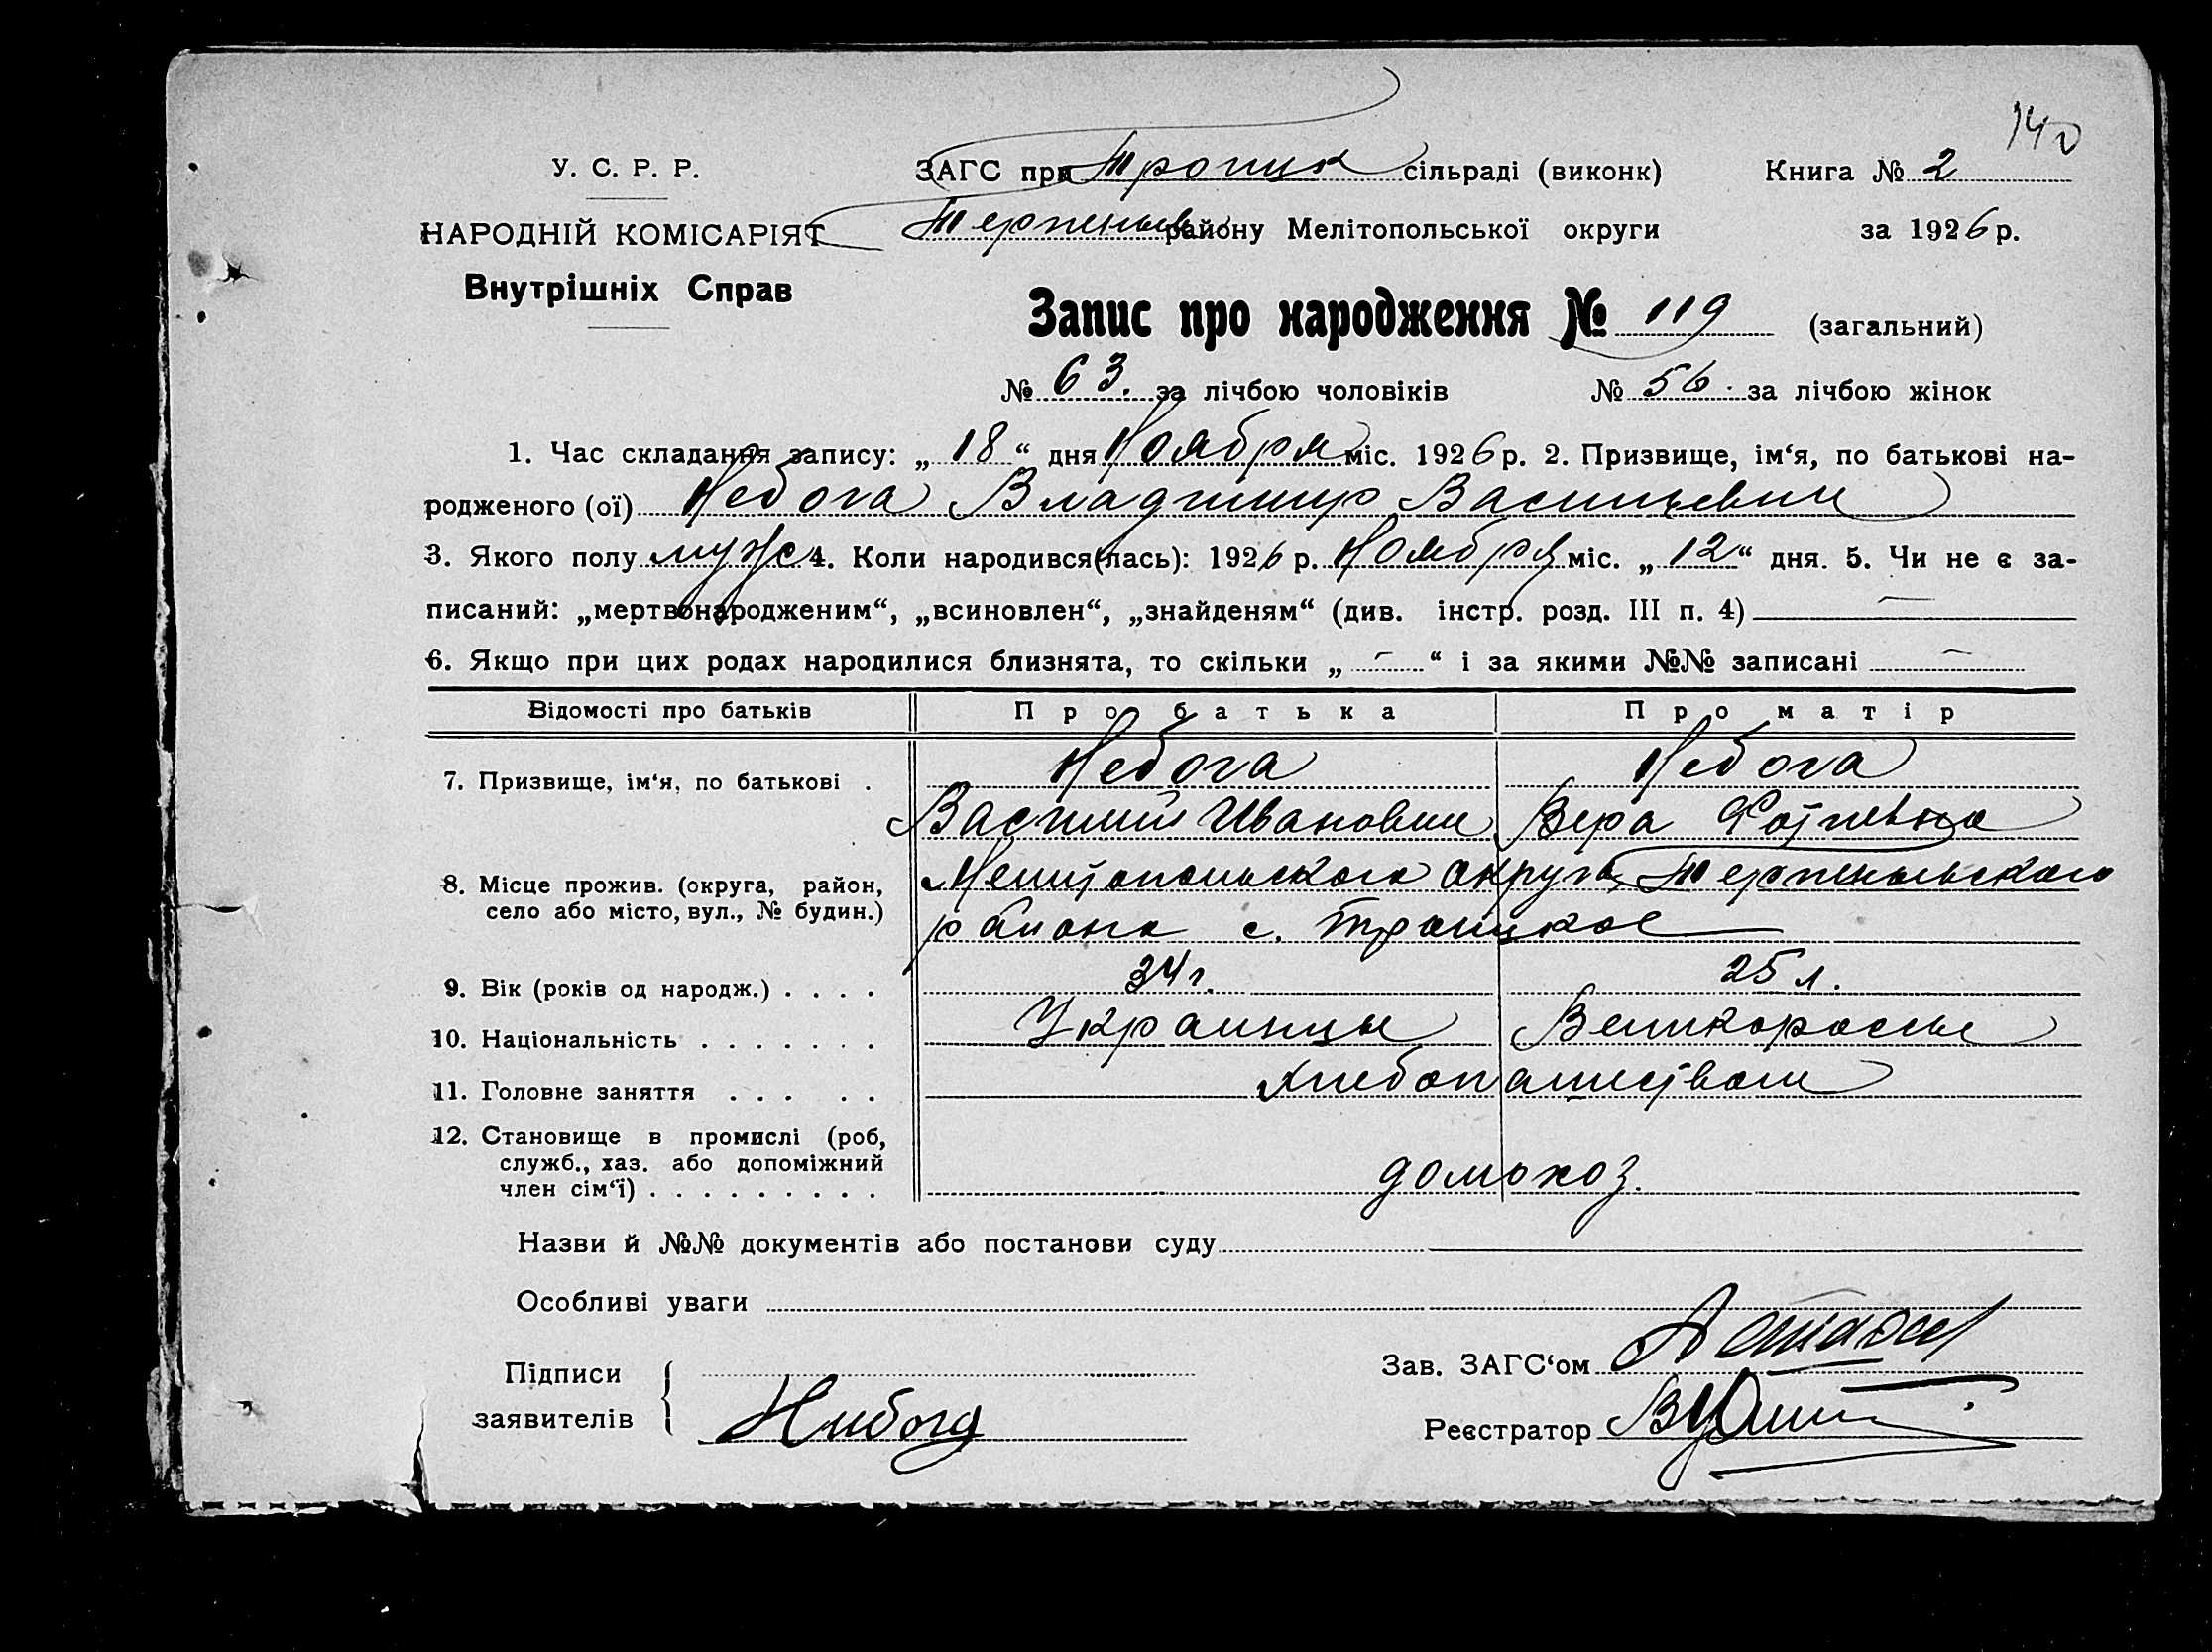 140
У. С. Р. Р.
ЗАГС при Троицк сільраді (виконк)
Книга № 2
НАРОДНІЙ КОМІСАРІЯТ
району Мелітопольської округи
за 1926 р.
Внутрішніх Справ
Запис про народження № 119 (загальний)
№ 63. за лічбою чоловіків № 56. за лічбою жінок
1. Час складання запису: „ 18 “ дня Ноября міс. 1926 р. 2. Призвище, ім‘я, по батькові на-
родженого (ої) Небога Владимир Васильевич
3. Якого полу муж 4. Коли народився(лась): 1926 р. Ноября міс. „ 12 “ дня. 5. Чи не є за-
писаний: „мертвонародженим“, „всиновлен“, „знайденям“ (див. інстр. розд. III п. 4) —
6. Якщо при цих родах народилися близнята, то скільки „ — “ і за якими №№ записані —
Відомості про батьків Про батька Про матір
7. Призвище, ім‘я, по батькові . Небога Небога
Василий Иванович Вера
8. Місце прожив. (округа, район, Мелитопольского округа,
село або місто, вул., № будин.) района с. Троицкое
9. Вік (років од народж.) . . . . 34 г. 25 л.
10. Національність . . . . . . . Украинцы Великороссы
11. Головне заняття . . . . . Хлебопашеством
12. Становище в промислі (роб,
служб., хаз. або допоміжний
член сім‘ї) . . . . . . . . . домохоз.
Назви й №№ документів або постанови суду
Особливі уваги
Підписи
заявителів
Зав. ЗАГС‘ом
Реєстратор